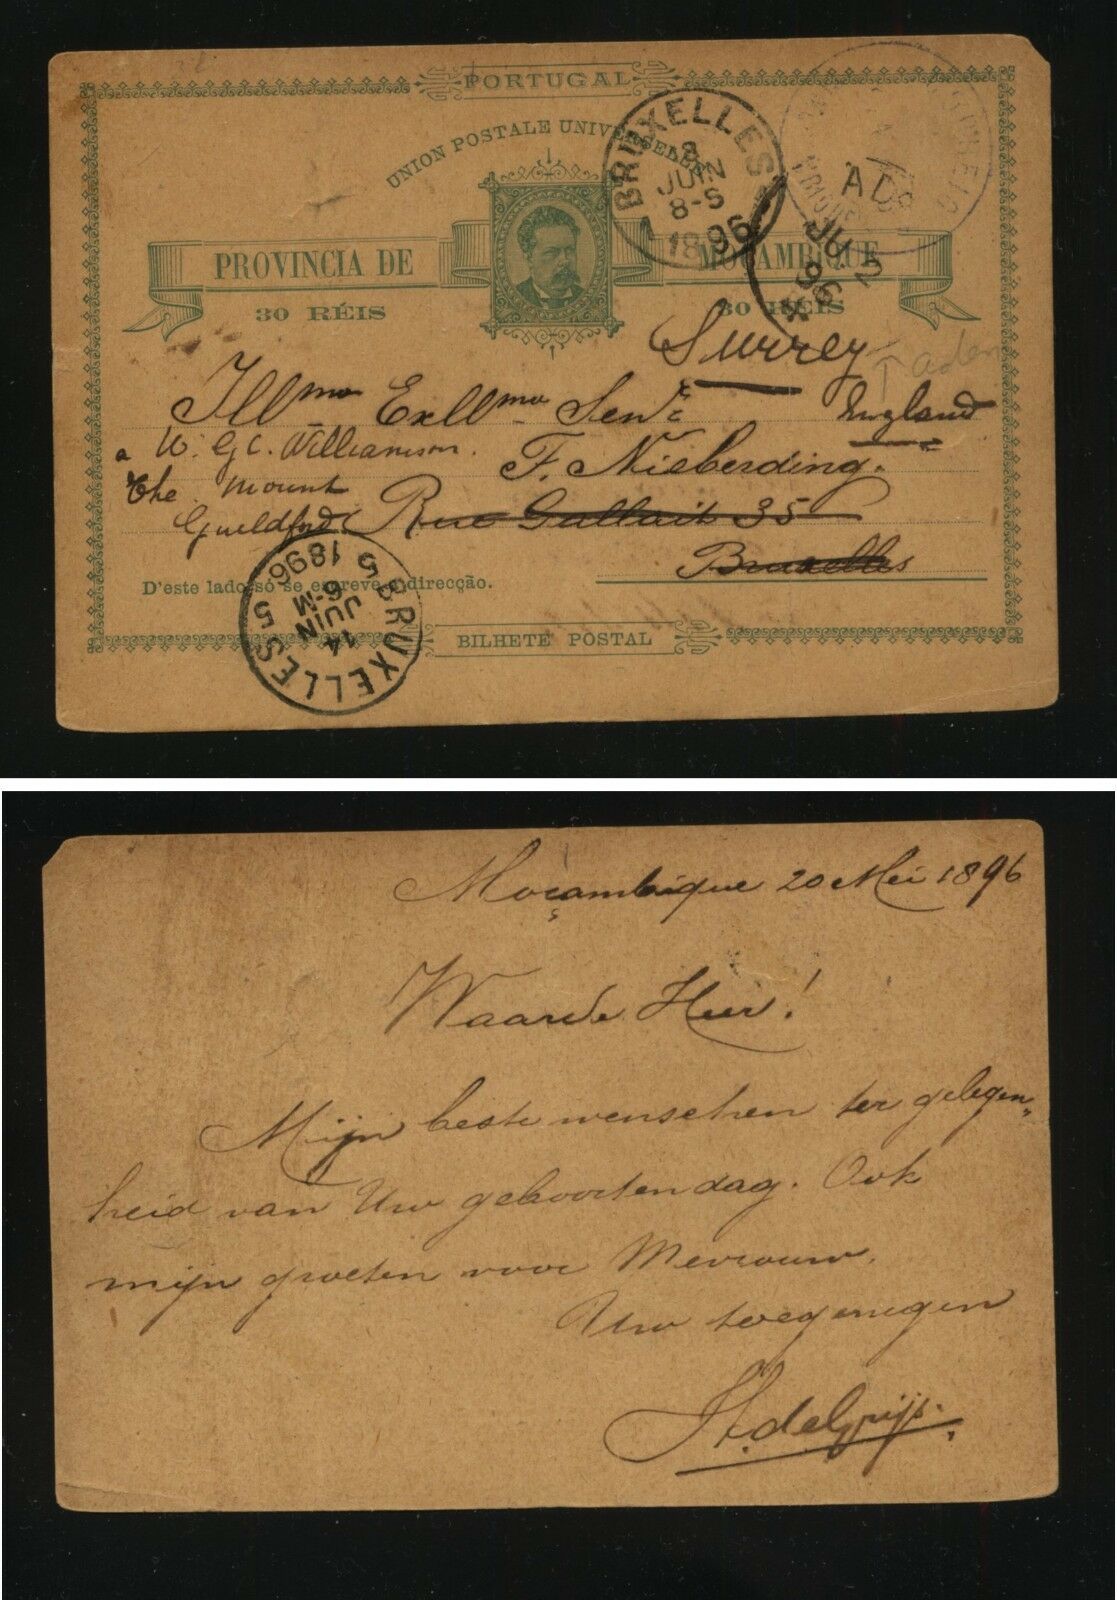 PORTUGAL
UNION POSTALE UNIVERSELLE
PROVINCIA DE MOÇAMBIQUE
30 RÉIS 30 RÉIS
BRUXELLES
8
JUIN
8-S
1896
AD
JU 2
96
Surrey
England
T aden
Illmo Exllmo Senr
a W. G. C. Williamson.
F. Nieberding.
The Mount
Guildford
Rue Gallait 35
Bruxelles
D'este lado só se escreve a direcção.
BRUXELLES 5
14
JUIN
6-M
1896
5
BILHETE POSTAL
Moçambique 20 Mei 1896
Waarde Heer!
Mijn beste wenschen ter gelegen„
heid van Uw geboortendag. Ook
mijn groeten voor Mevrouw.
Uw toegenegen